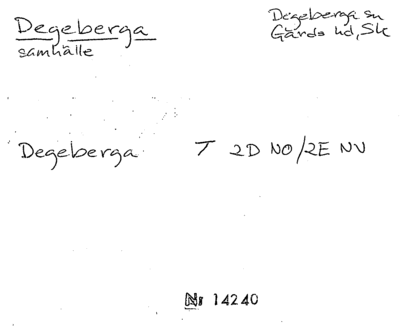 Degeberga
samhälle
Degeberga sn
Gärds hd, Sk
Degeberga T 2D NO/2E NV
Nr 14240